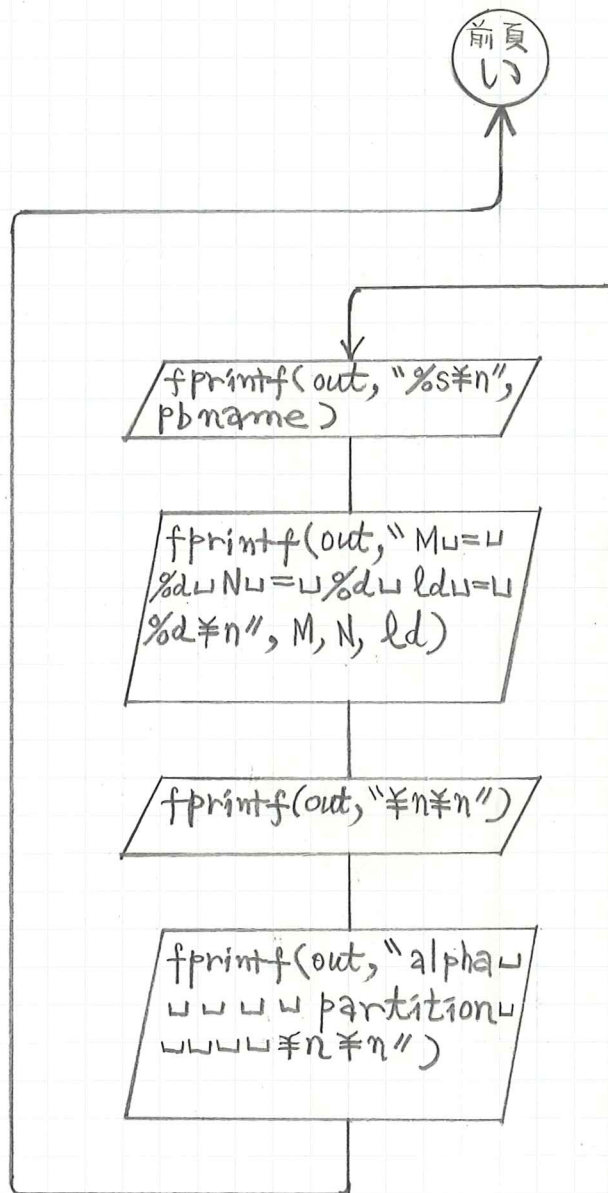 前頁
い
fprintf(out, "%s¥n",
pbname)
fprintf(out, "M␣=␣
%d␣N␣=␣%d␣ld␣=␣
%d¥n", M, N, ld)
fprintf(out, "¥n¥n")
fprintf(out, "alpha␣
␣␣␣␣partition␣
␣␣␣␣¥n¥n")